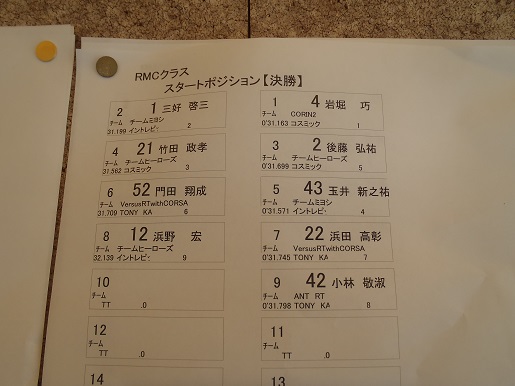 RMCクラス
スタートポジション【決勝】
2 1 三好 啓三
チーム チームミヨシ
31.199 イントレピッ 2
1 4 岩堀 巧
チーム CORIN2
0'31.163 コスミック 1
4 21 竹田 政孝
チーム チームヒーローズ
31.562 コスミック 3
3 2 後藤 弘祐
チーム チームヒーローズ
0'31.699 コスミック 5
6 52 門田 翔成
チーム VersusRTwithCORSA
31.709 TONY KA 6
5 43 玉井 新之祐
チーム チームミヨシ
0'31.571 イントレピッ 4
8 12 浜野 宏
チーム チームヒーローズ
32.139 イントレピッ 9
7 22 浜田 高彰
チーム VersusRTwithCORSA
0'31.745 TONY KA 7
10
チーム
TT .0
9 42 小林 敬淑
チーム ANT RT
0'31.798 TONY KA 8
12
チーム
TT .0
11
チーム
TT .0
14
13